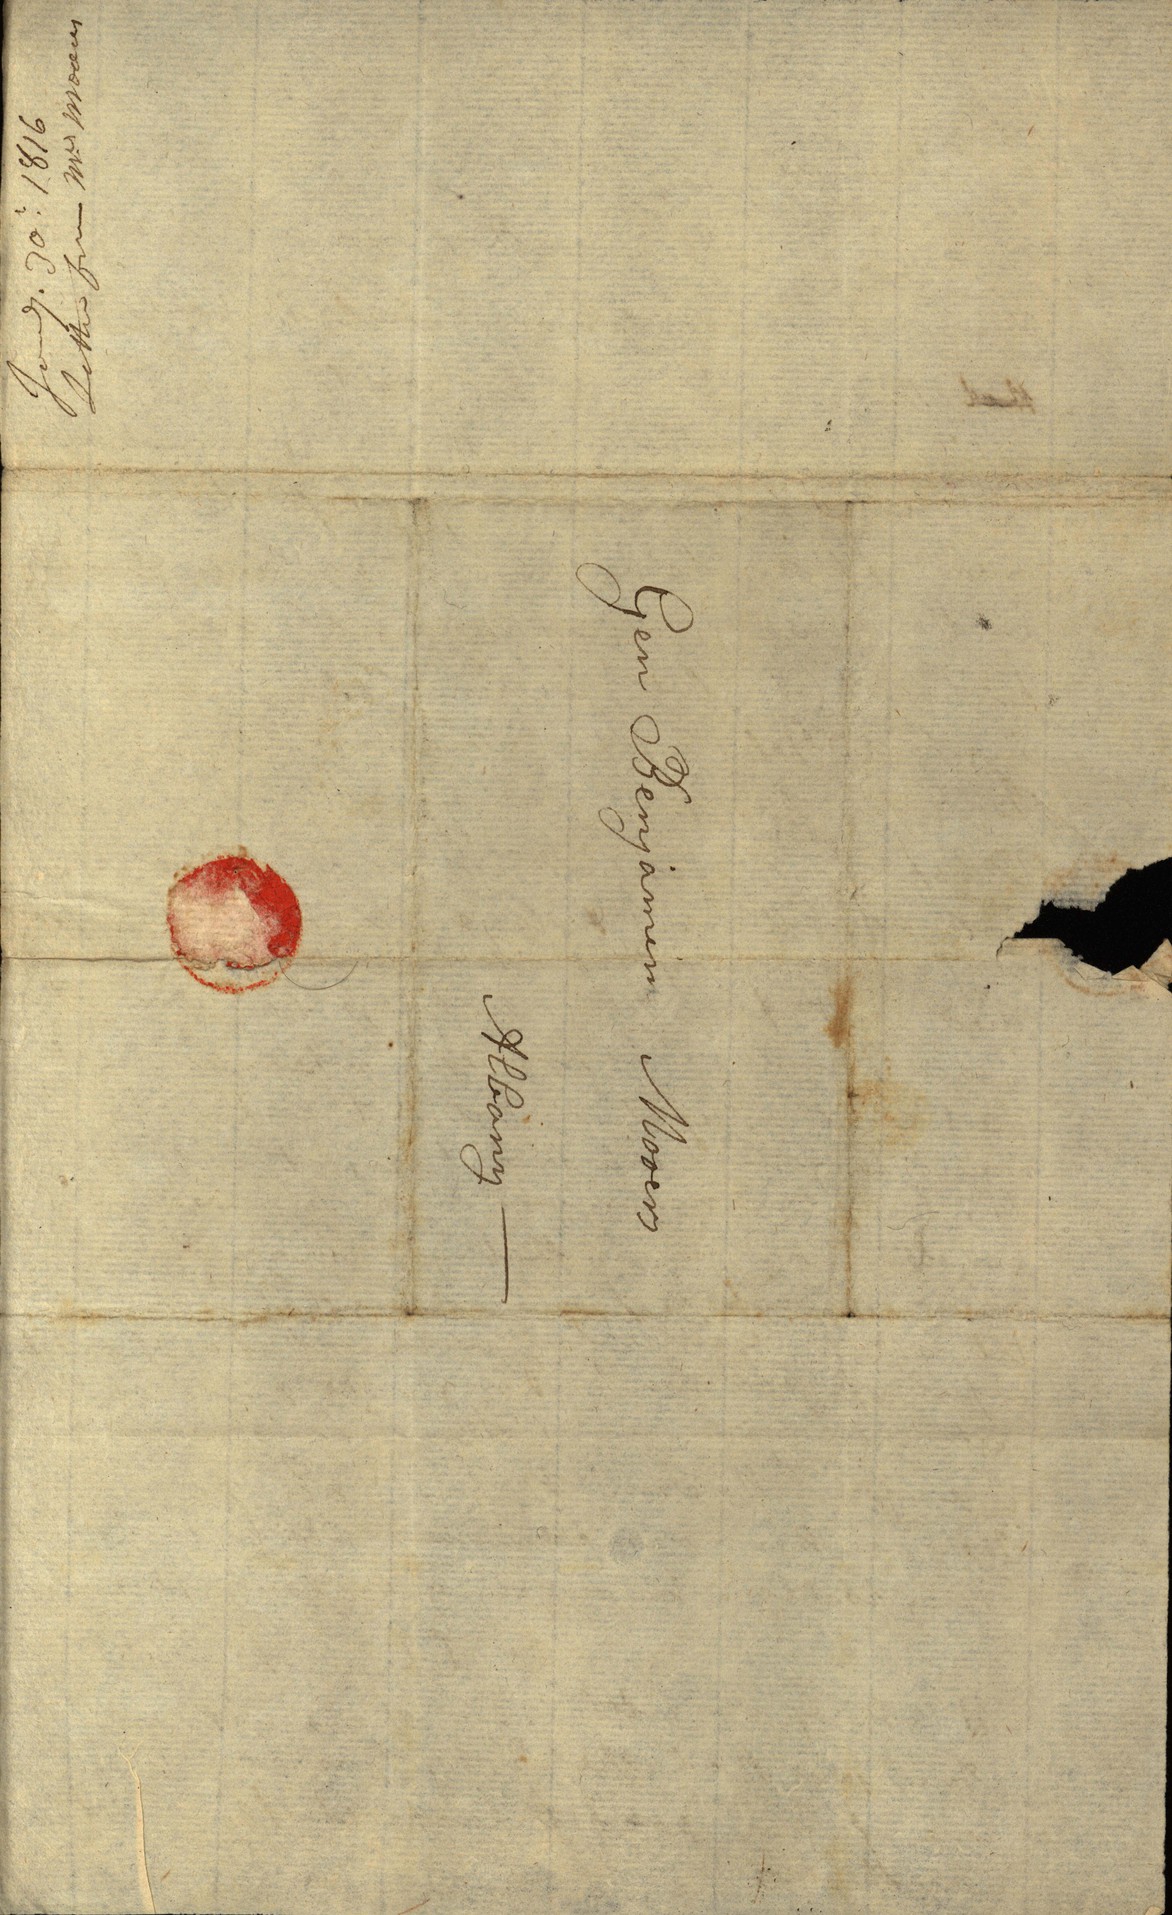 Jany. 30th. 1816
Letter from Mrs Mooers
Gen Benjamin Mooers
Albany